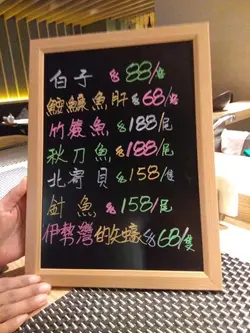 白子 $88/份
鱈鱇魚肝 $68/份
竹簽魚 $188/尾
秋刀魚 $188/尾
北寄貝 $158/隻
針魚 $158/尾
伊勢灣的生蠔 $68/隻